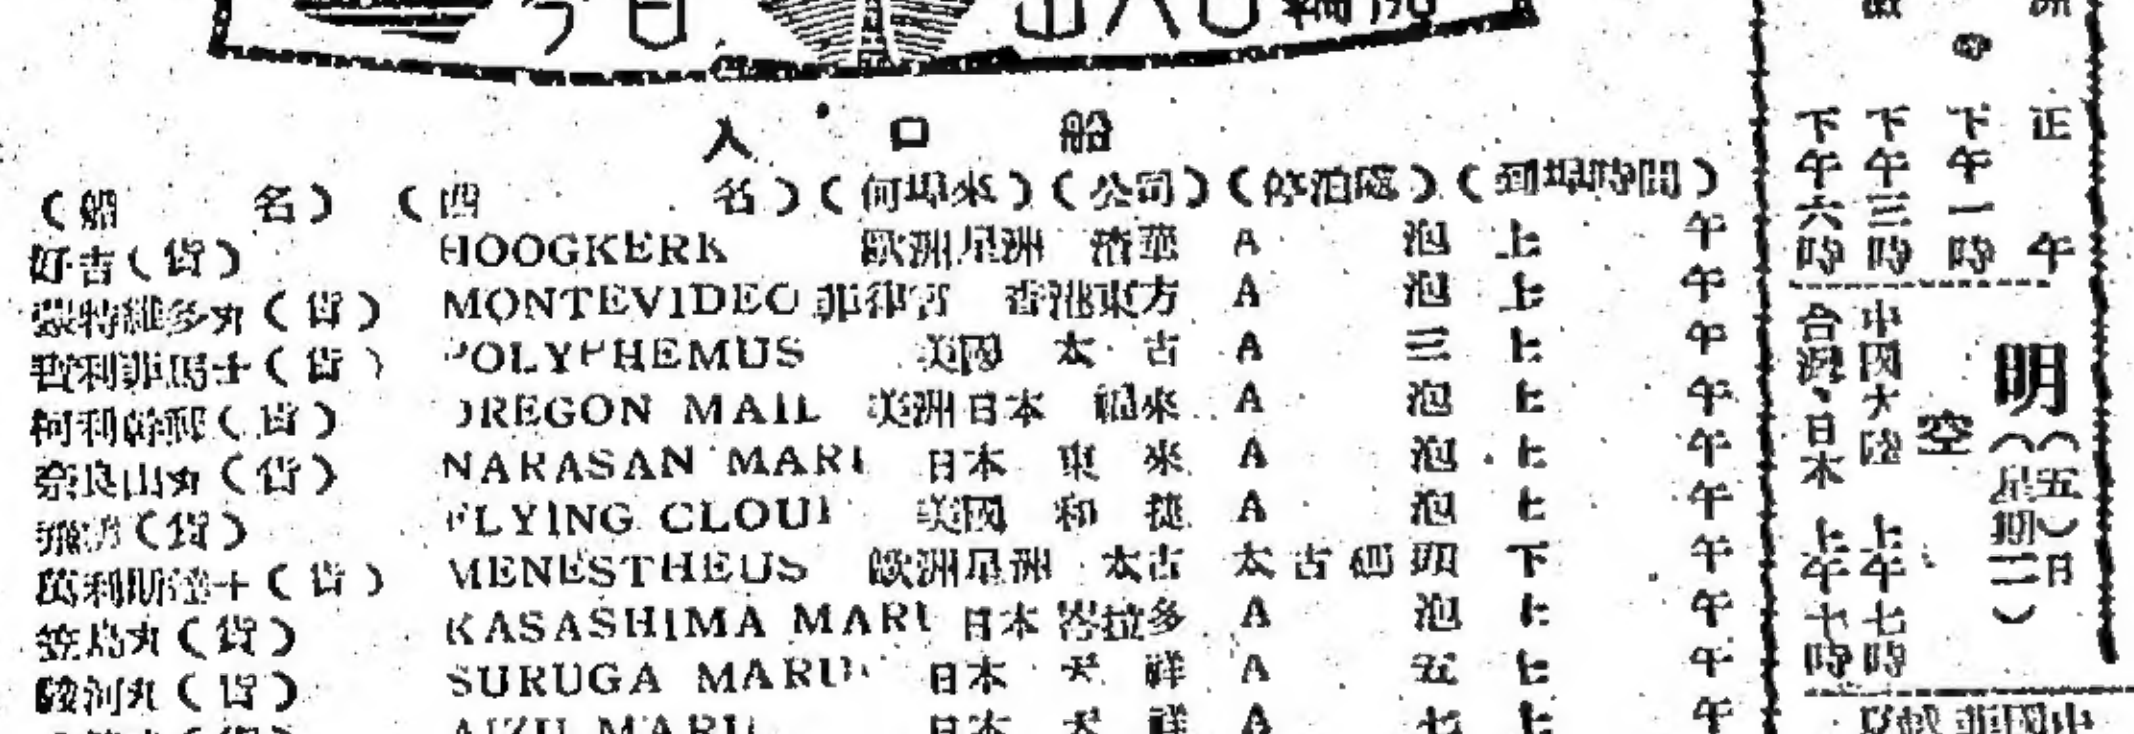 今日 出入口輪船
入口船
（船名）（西名）（何埠來）（公司）（停泊處）（到埠時間）
好吉（貨） HOOGKERK 歐洲星洲 渣華 A 泡 上午
蒙特維多丸（貨） MONTEVIDEO 菲律宾 香港東方 A 泡 上午
利菲馬士（貨） POLYPHEMUS 美國 太古 A 三 上午
柯利幹郵（貨） OREGON MAIL 美洲日本 福來 A 泡 上午
奈良山丸（貨） NARASAN MARU 日本 東來 A 泡 上午
飛（貨） FLYING CLOUD 美國 和 A 泡 上午
萬利斯達士（貨） MENESTHEUS 歐洲星洲 太古 太古碼頭 下午
笠島丸（貨） KASASHIMA MARU 日本 岑拉多 A 泡 上午
駿河丸（貨） SURUGA MARU 日本 天祥 A 五 上午
（貨） AIZU MARU 日本 天祥 A 七 上午
正午
下午一時
下午三時
下午六時
明（五）日
（星期二）
空
中國大陸 上午七時
台灣・日本 上午十時